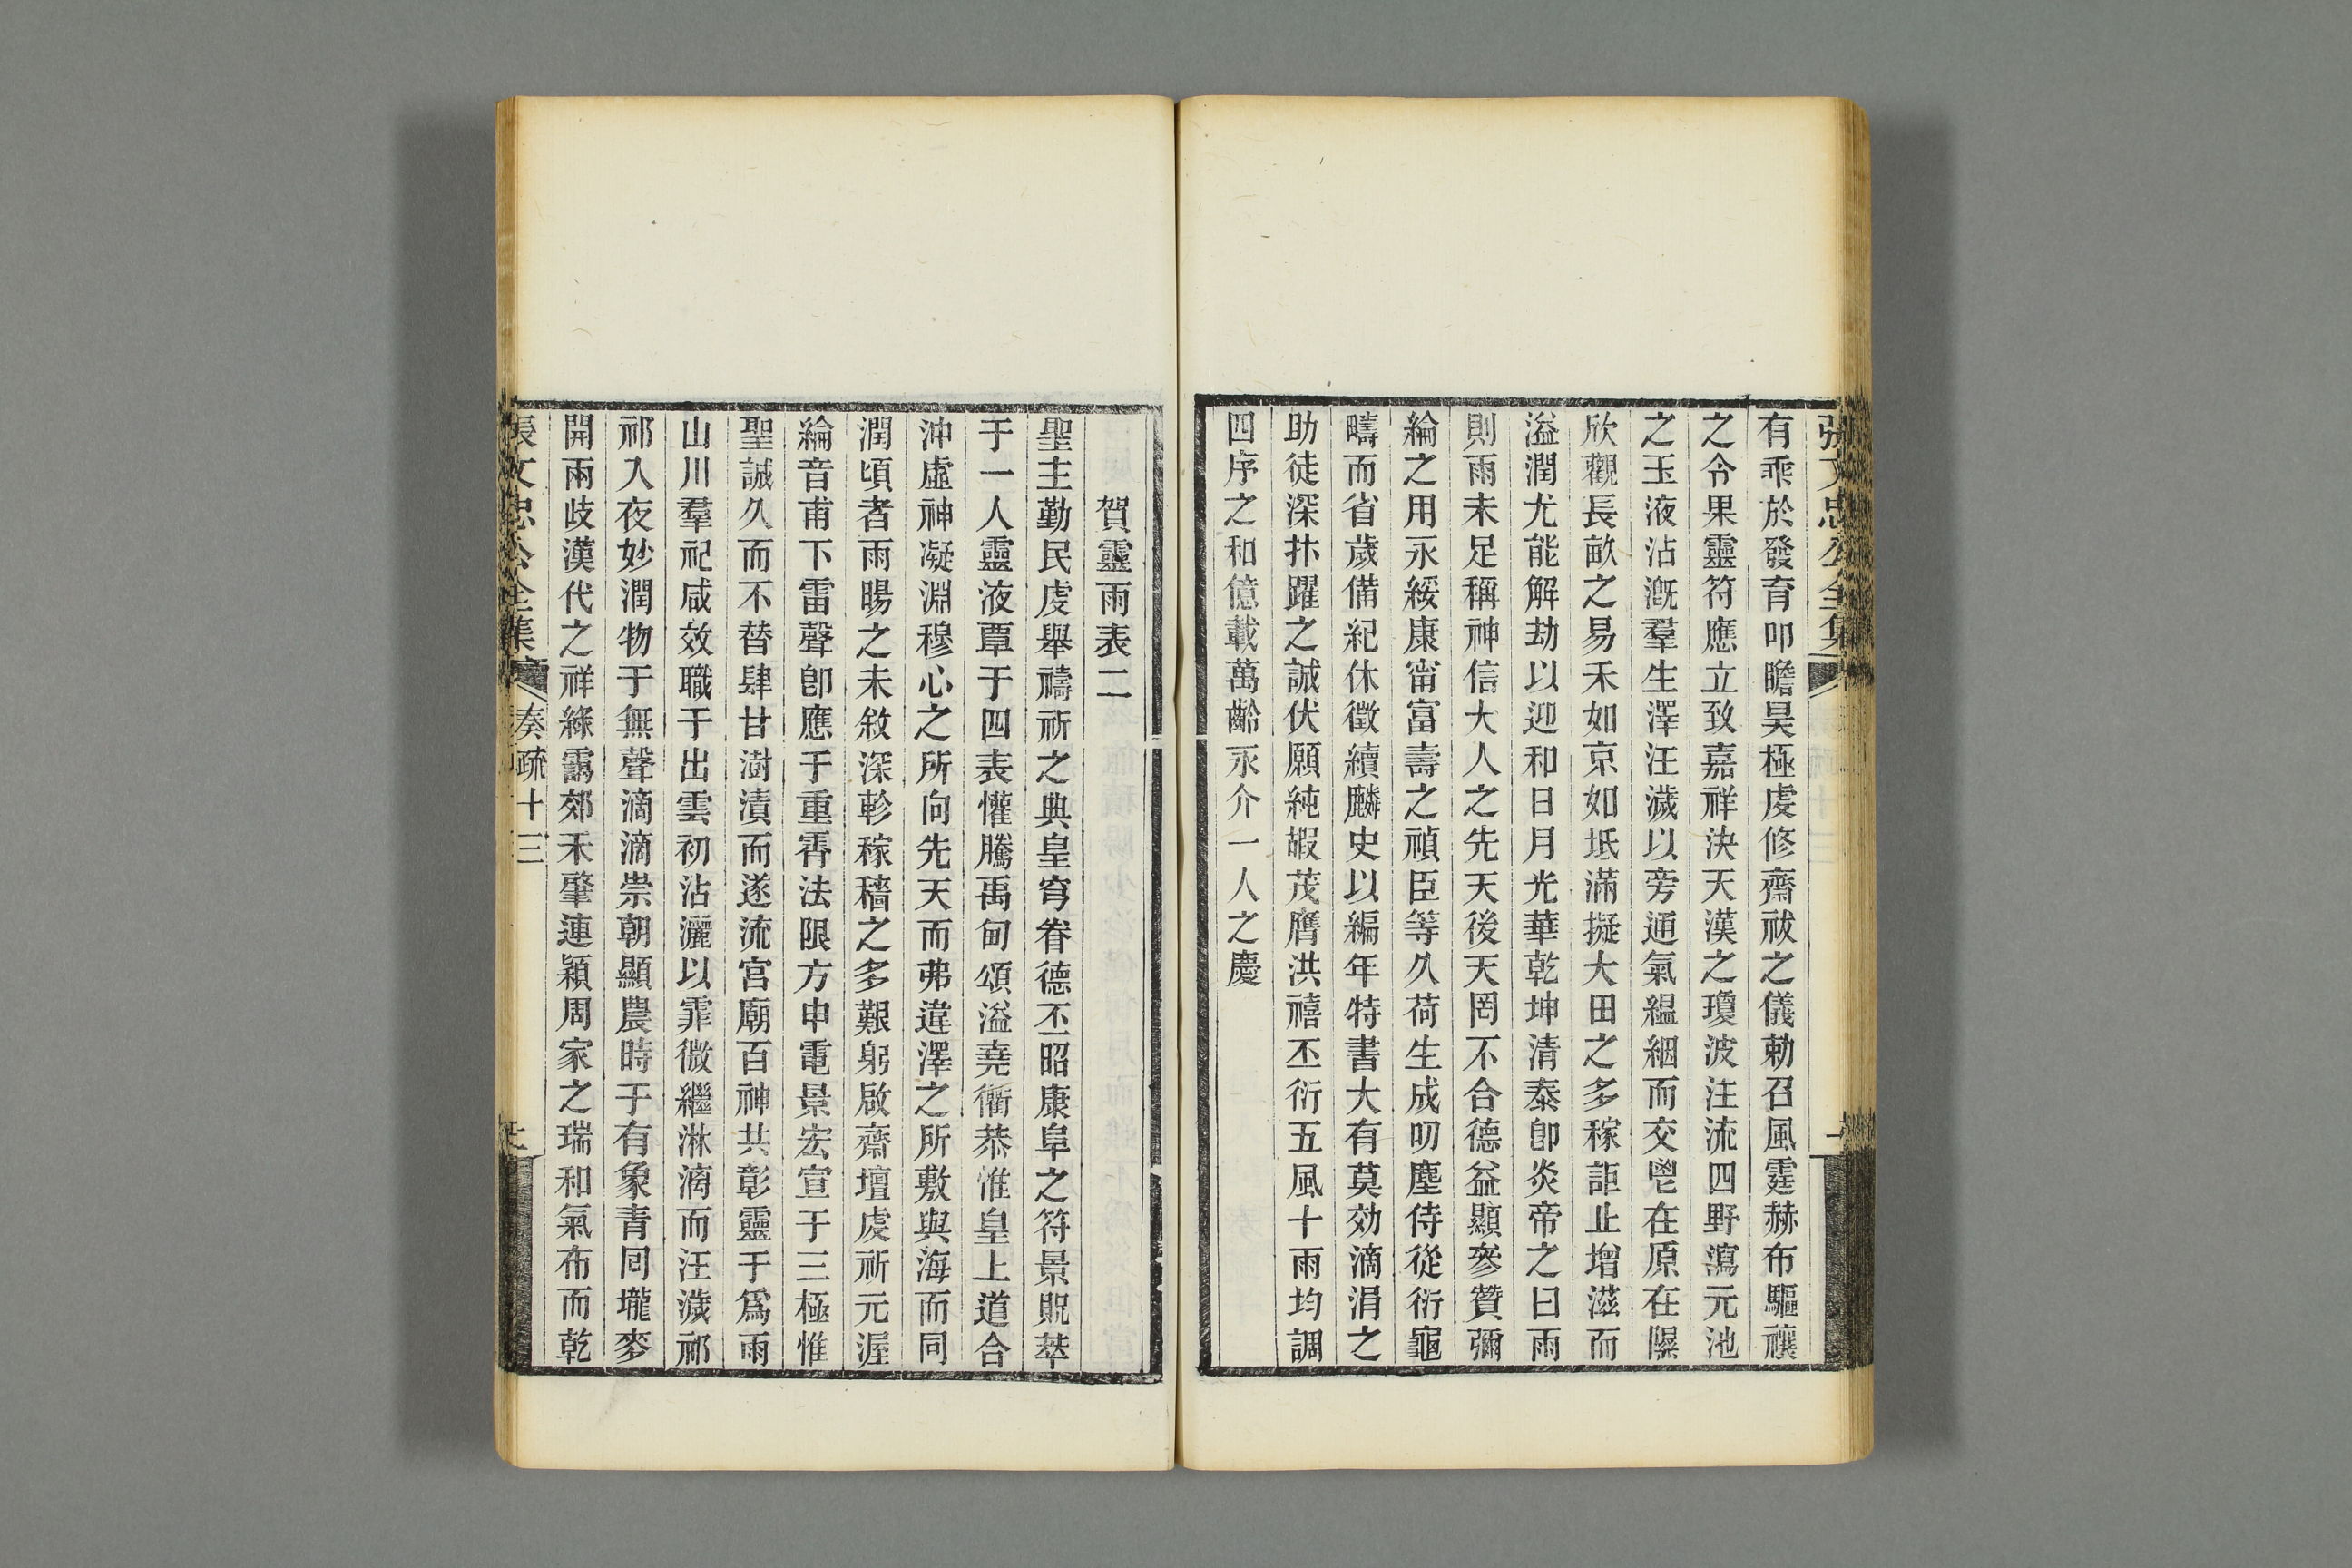 張文忠公全集
有乖於發育叩瞻昊極虔修齋祓之儀勅召風霆赫布驅禳
之令果靈符應立致嘉祥決天漢之瓊波注流四野瀉元池
之玉液沾漑羣生澤汪濊以旁通氣縕絪而交鬯在原在隰
欣觀長畝之易禾如京如坻滿擬大田之多稼詎止增滋而
溢潤尤能解劫以迎和日月光華乾坤清泰卽炎帝之曰雨
則雨未足稱神信大人之先天後天罔不合德益顯參贊彌
綸之用永綏康甯富壽之禎臣等久荷生成叨塵侍從衍龜
疇而省歲備紀休徵續麟史以編年特書大有莫効滴涓之
助徒深抃躍之誠伏願純嘏茂膺洪禧丕衍五風十雨均調
四序之和億載萬齡永介一人之慶
賀靈雨表二
聖主勤民虔舉禱祈之典皇穹眷德丕昭康阜之符景貺萃
于一人靈液覃于四表懽騰禹甸頌溢堯衢恭惟皇上道合
沖虛神凝淵穆心之所向先天而弗違澤之所敷與海而同
潤頃者雨暘之未敘深軫稼穡之多艱躬啟齋壇虔祈元渥
綸音甫下雷聲卽應于重霄法限方申電景宏宣于三極惟
聖誠久而不替肆甘澍漬而遂流宮廟百神共彰靈于爲雨
山川羣祀咸效職于出雲初沾灑以霏微繼淋漓而汪濊祁
祁入夜妙潤物于無聲滴滴崇朝顯農時于有象青同壠麥
開兩歧漢代之祥綠靄郊禾肇連穎周家之瑞和氣布而乾
張文忠公全集 奏疏十三